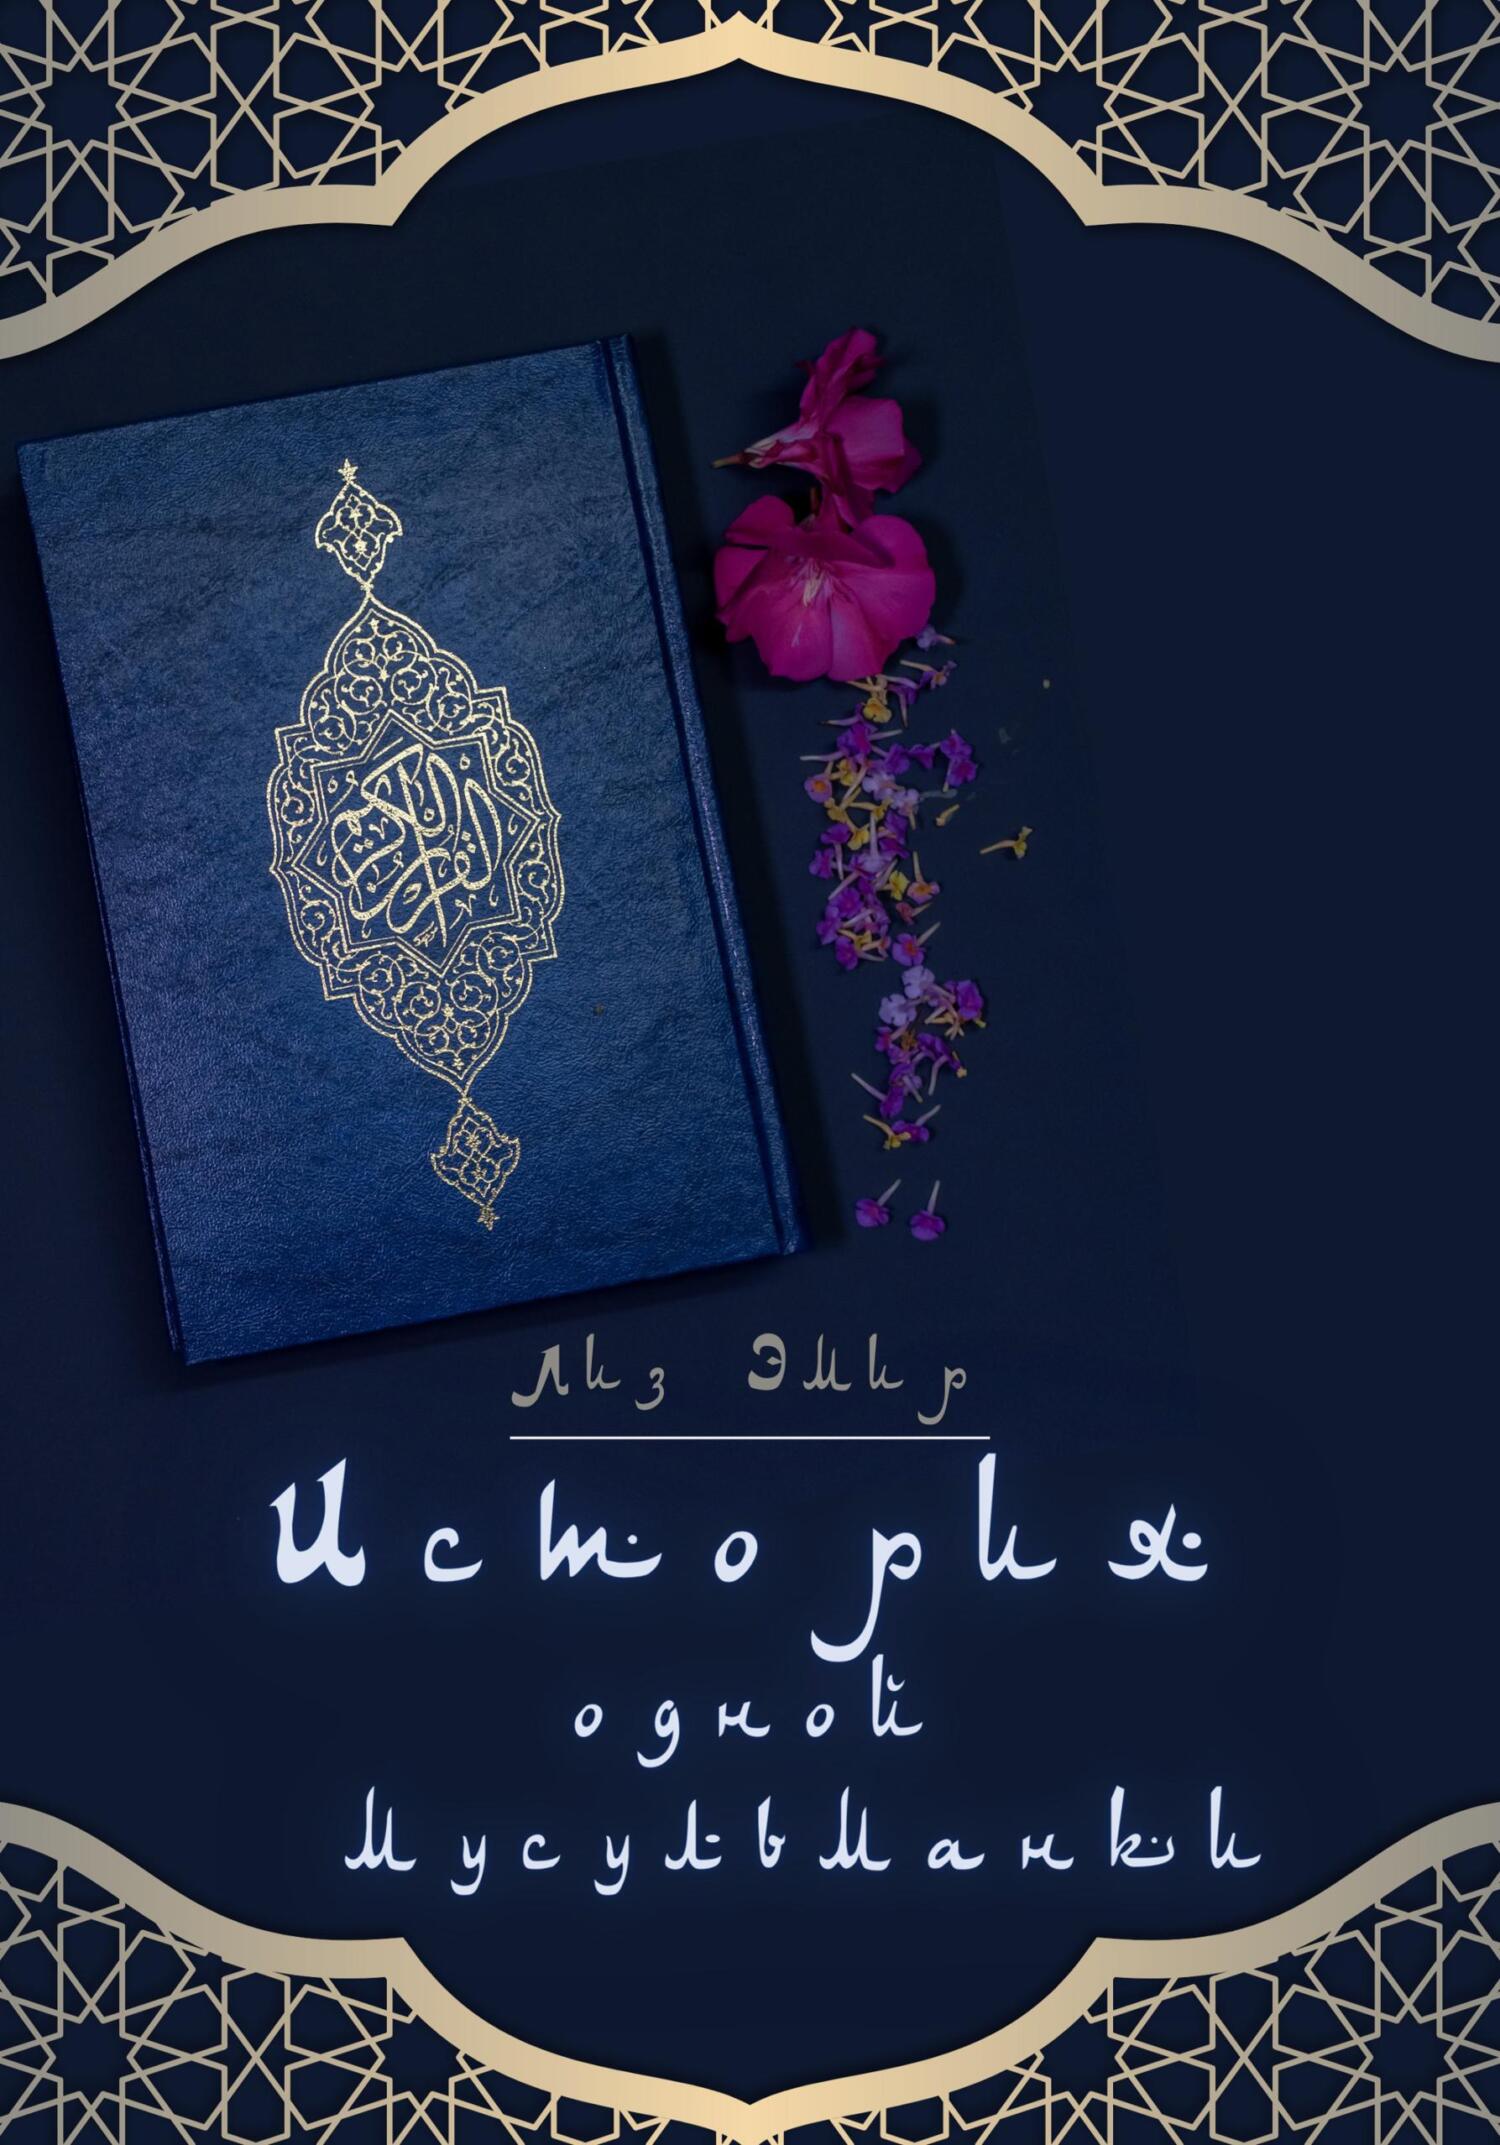 القرآن الكريم
Лиз Эмир
История
одной
Мусульманки